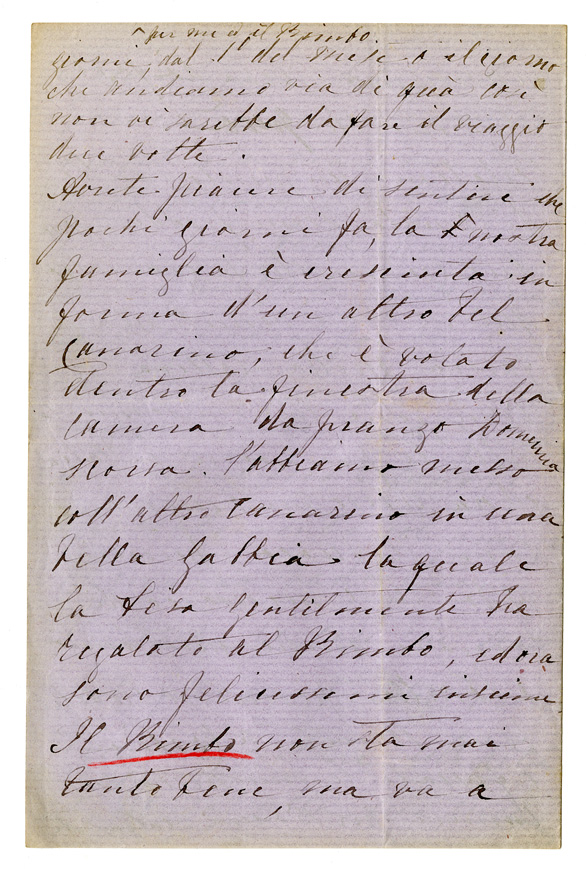 per me ed il Bimbo
giorni, dal 1° del mese o il giorno
che andiamo via di quà così
non vi sarebbe da fare il viaggio
due volte.
Avrete piacere di sentire che
pochi giorni fa, la nostra
famiglia è cresciuta in
forma d'un altro bel
Canarino, che è volato
dentro la finestra della
camera da pranzo Domenica
scorsa. l'abbiamo messo
coll'altro Canarino in una
bella gabbia la quale
la gentilmente ha
regalato al Bimbo, ed ora
sono felicissimi insieme.
Il Bimbo non sta mai
tanto bene, ma va a